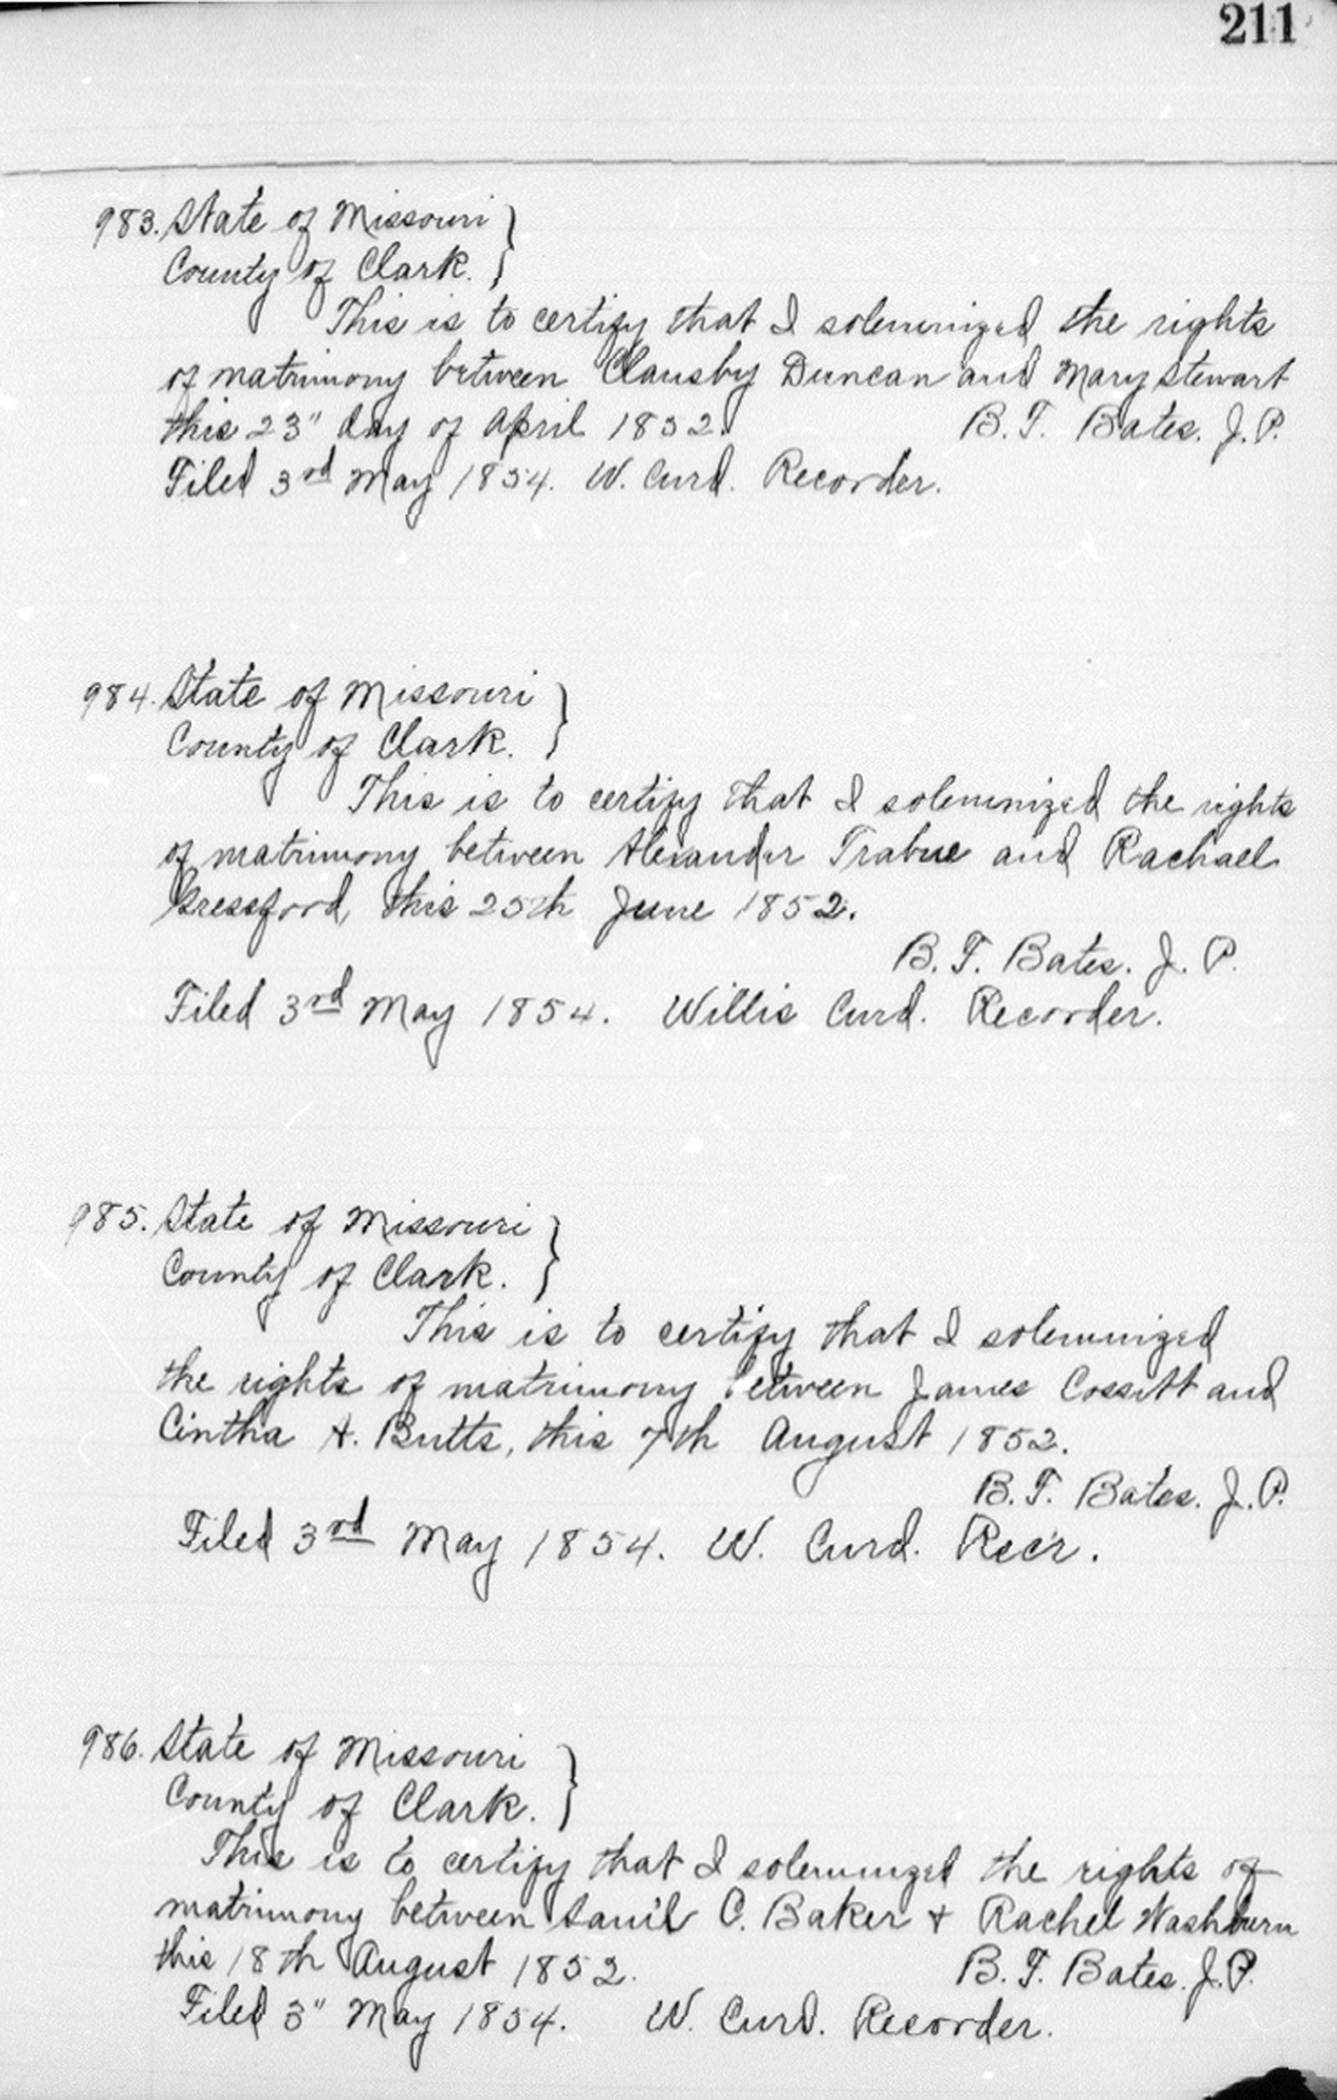 211
983. State of Missouri }
County of Clark. }
This is to certify that I solemnized the rights
of matrimony between Clausby Duncan and Mary Stewart
this 23" day of April 1852. B. T. Bates. J. P.
Filed 3rd May 1854. W. Curd. Recorder.
984. State of Missouri }
County of Clark. }
This is to certify that I solemnized the rights
of matrimony between Alexander Trabue and Rachael
this 25th June 1852.
B. T. Bates. J. P.
Filed 3rd May 1854. Willis Curd. Recorder.
985. State of Missouri }
County of Clark. }
This is to certify that I solemnized
the rights of matrimony between James Cossitt and
Cintha A. Butts, this 7th August 1852.
B. T. Bates. J. P.
Filed 3rd May 1854. W. Curd. Rec'r.
986. State of Missouri }
County of Clark. }
This is to certify that I solemnized the rights of
matrimony between Sam'l C. Baker + Rachel Washburn
this 18th August 1852. B. T. Bates. J. P.
Filed 3" May 1854. W. Curd. Recorder.